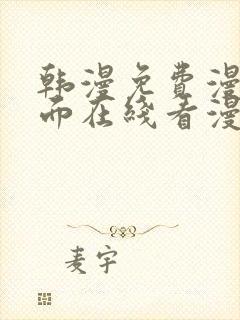 韩漫免费漫
而在线看漫
麦宇